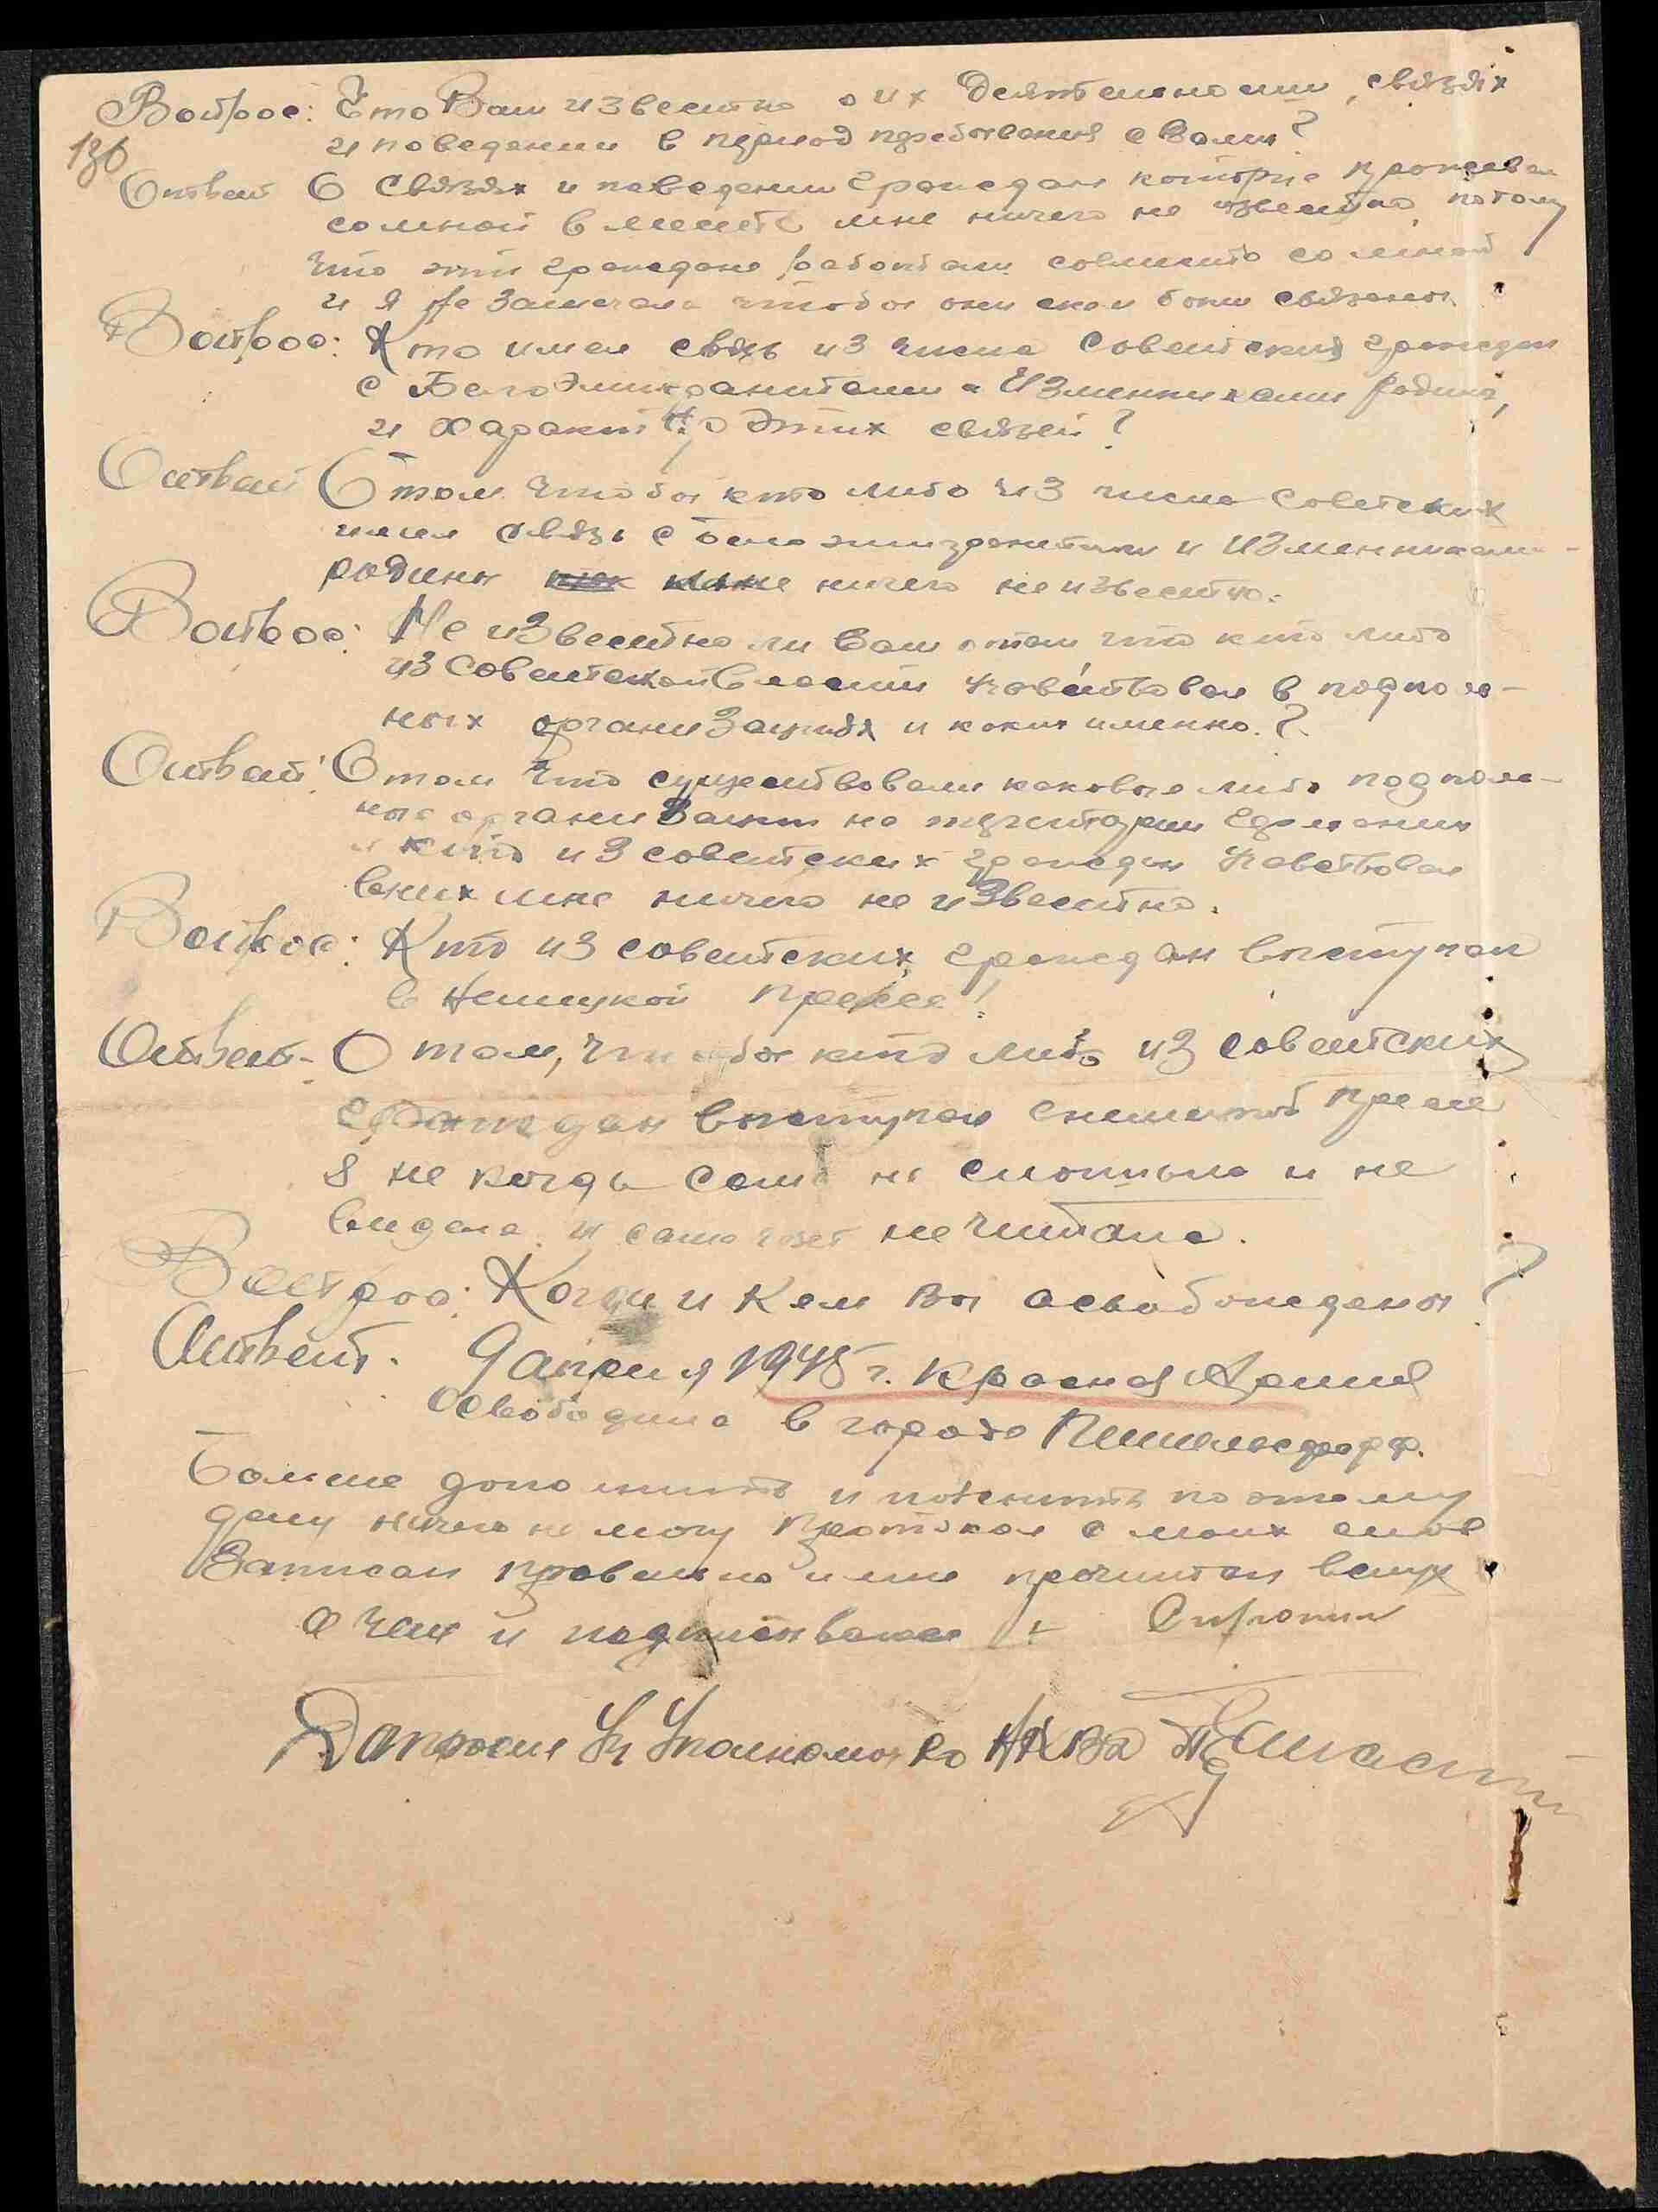 Вопрос: Что Вам известно о их деятельности, связях
136
и поведении в период пребования с вами?
Ответ О связях и поведении граждан которые проживали
сомной вместе мне ничего не известно потому
что эти граждане работали совместо со мной
и я не замечала чтобы они скем были связаны.
Вопрос: Кто имел связь из числа советских граждан
с Белоэмигрантами и Изменниками родины,
и характер этих связей?
Ответ О том чтобы кто либо из числа советских
имел связь с белоэмигрантами и изменниками
родины мне ничего не известно.
Вопрос: Не известно ли Вам отом что кто либо
из советской власти учавствовал в подполь-
ных организациях и каких именно.?
Ответ: О том что существовали каковые либо подполь-
ные организации на территории Германии
и кто из советских граждан учавствовал
вених мне ничего не известно.
Вопрос: Кто из советских граждан выступал
в немецкой прессе!
Ответ- О том, что бы кто либо из советских
граждан выступал в прессе
я не когда сама не и не
видела и сама газет не читала.
Вопрос: Когда и кем вы освобождены?
Ответ. 9 апреля 1945 г. Красная Армия
освободила в городе
Больше дополнить и пояснить по этому
делу ничего не могу протокол с моих слов
Записан правильно и мне прочитан вслух
о чем и подписываюсь +
Допросил Уполномоч. НКВД